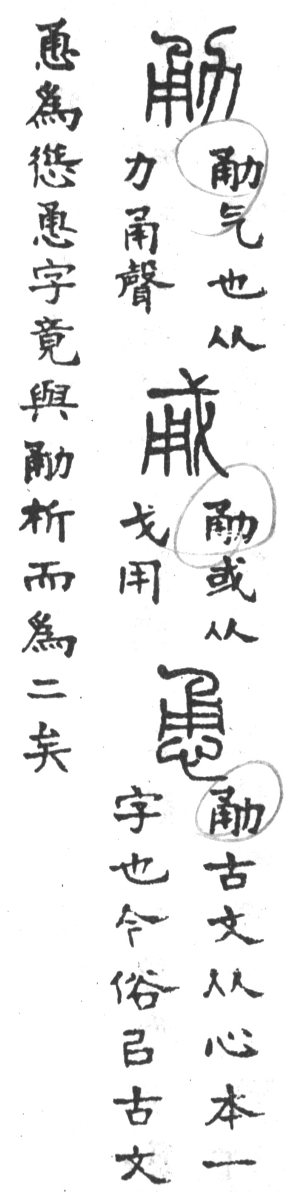 勈
勈气也从
力甬聲
㦷
勈或从
戈用
恿
勈古文从心本一
字也今俗㠯古文
恿為慫恿字竟與勈析而為二矣